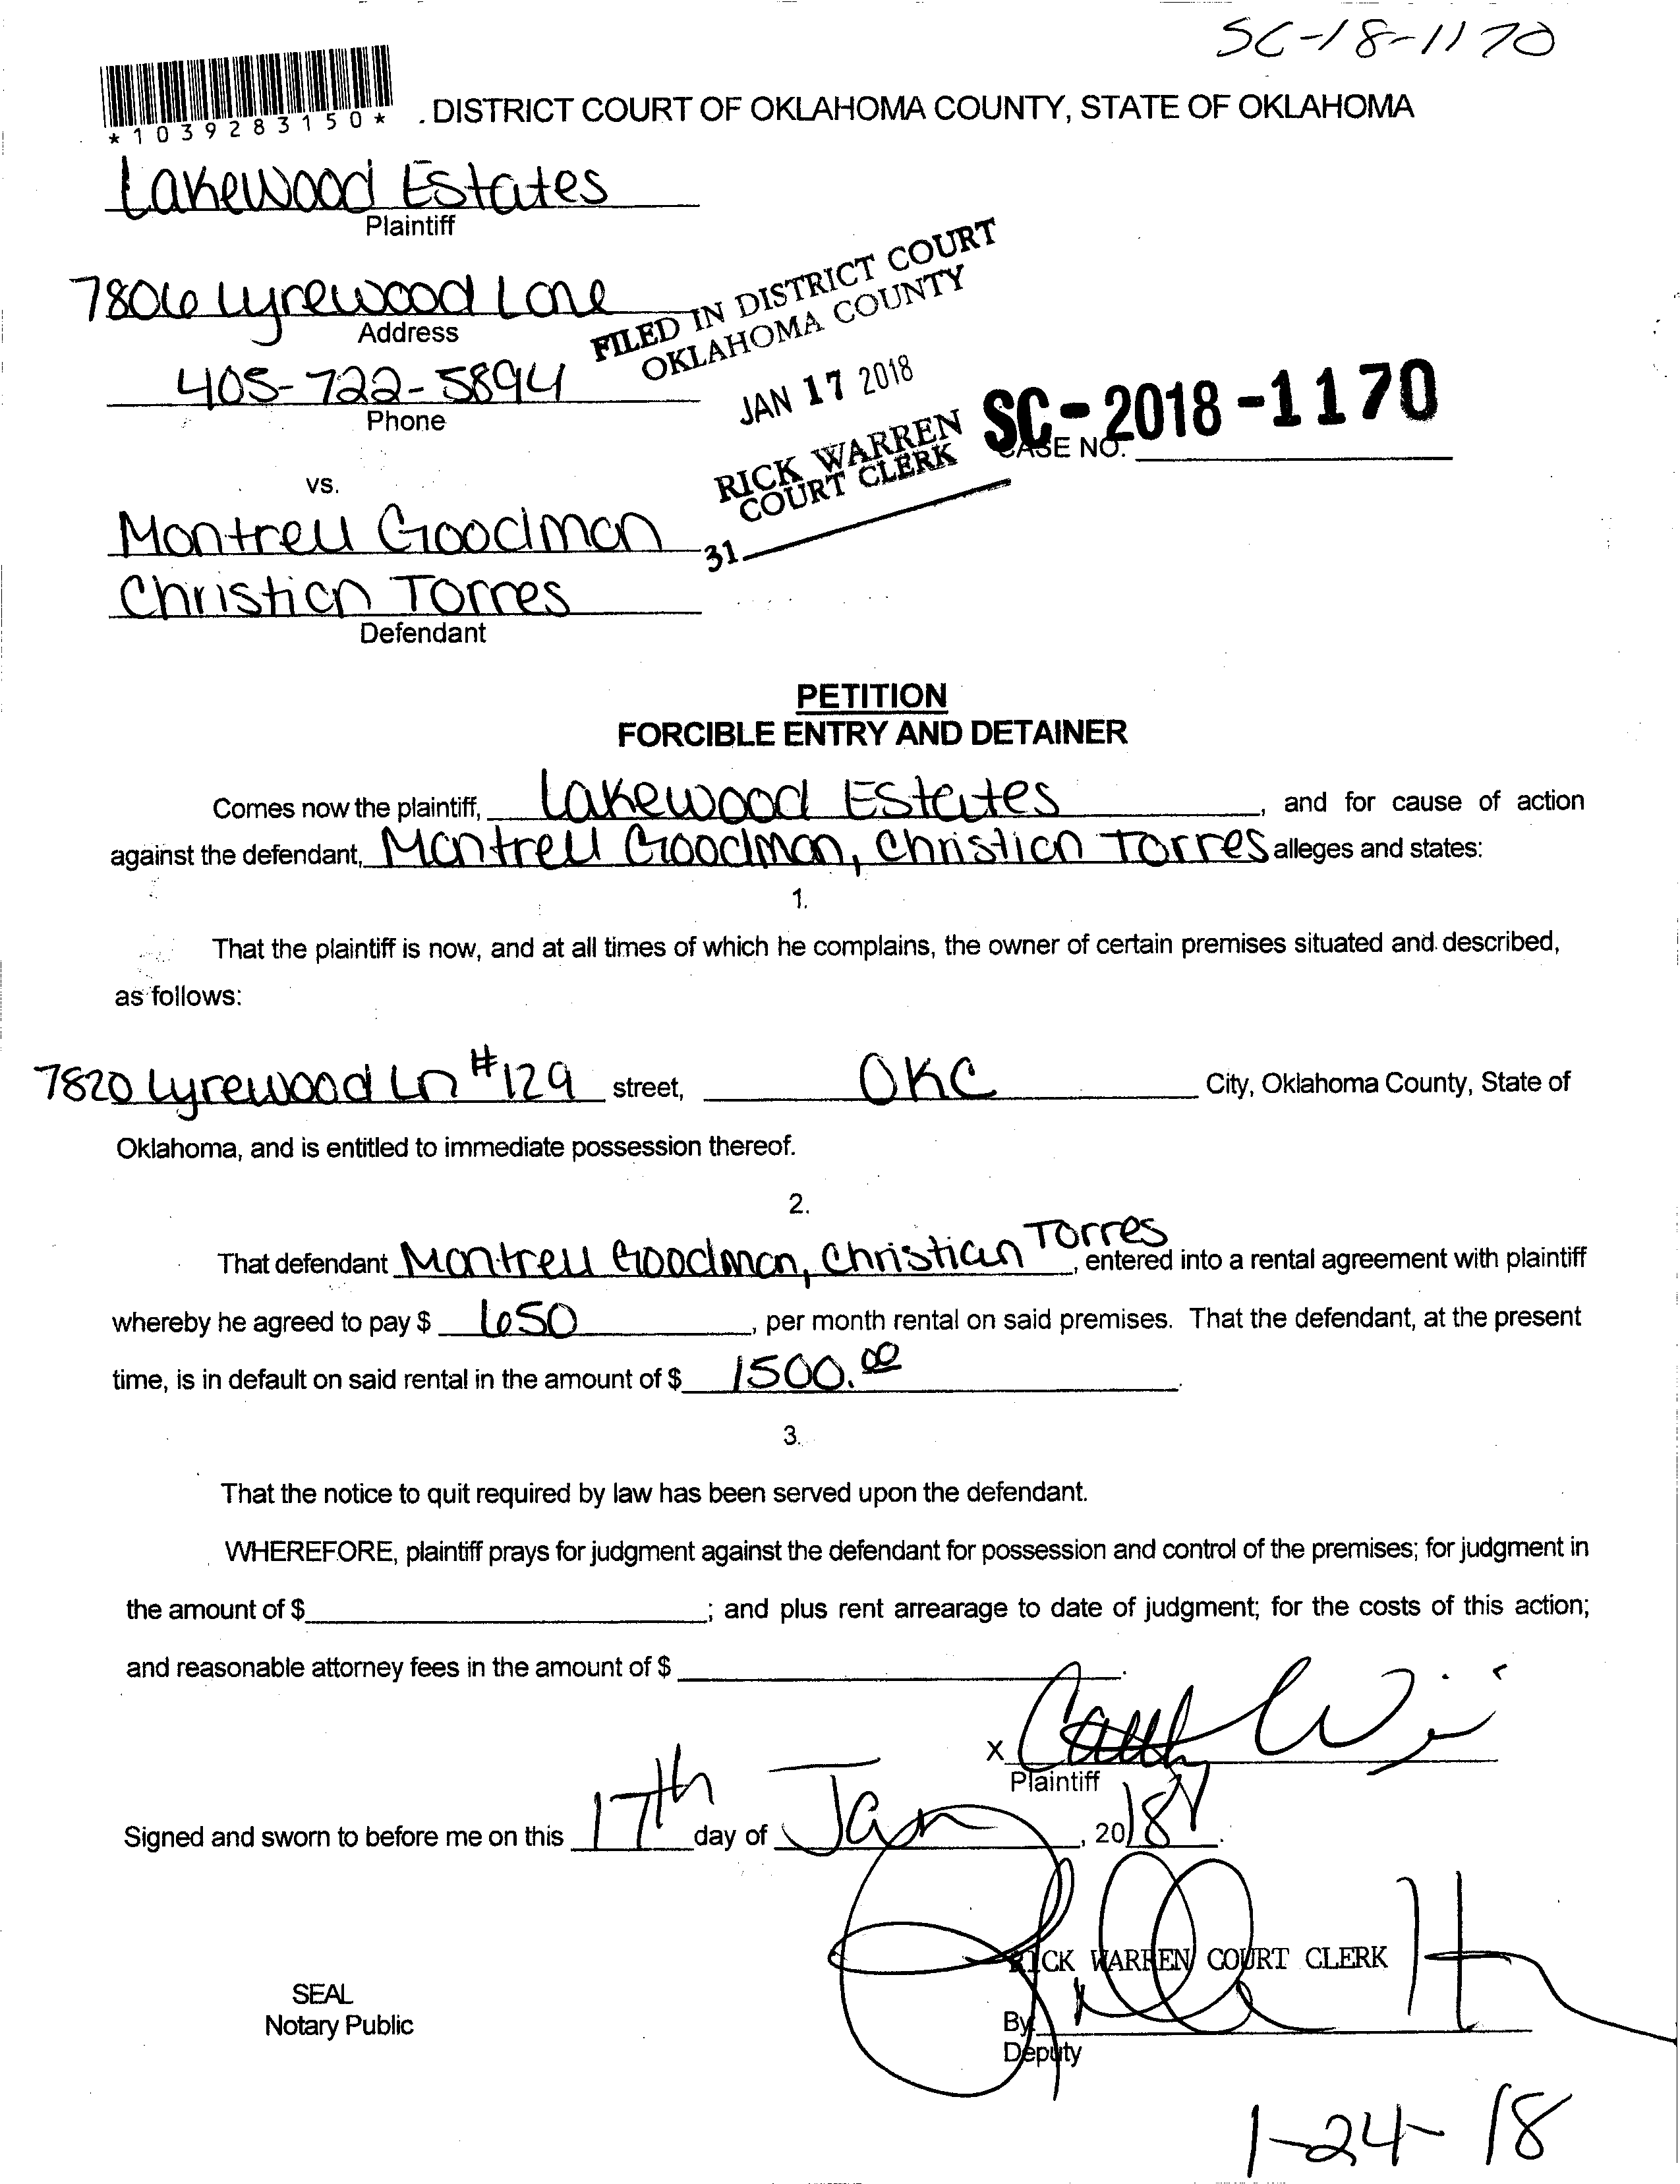 SC-18-1170
*1039283150*
. DISTRICT COURT OF OKLAHOMA COUNTY, STATE OF OKLAHOMA
Lakewood Estates
Plaintiff
7806 Lyrewood Lane
Address
405-722-5894
Phone
FILED IN DISTRICT COURT
OKLAHOMA COUNTY
JAN 17 2018
RICK WARREN
COURT CLERK
31
SC-2018-1170
CASE NO.
vs.
Montrell Goodman
Christian Torres
Defendant
PETITION
FORCIBLE ENTRY AND DETAINER
Comes now the plaintiff, Lakewood Estates, and for cause of action
against the defendant, Montrell Goodman, Christian Torres alleges and states:
1.
That the plaintiff is now, and at all times of which he complains, the owner of certain premises situated and described,
as follows:
7820 Lyrewood Ln #129 street, OKC City, Oklahoma County, State of
Oklahoma, and is entitled to immediate possession thereof.
2.
That defendant Montrell Goodman, Christian Torres, entered into a rental agreement with plaintiff
whereby he agreed to pay $ 650, per month rental on said premises. That the defendant, at the present
time, is in default on said rental in the amount of $ 1500.00.
3.
That the notice to quit required by law has been served upon the defendant.
WHEREFORE, plaintiff prays for judgment against the defendant for possession and control of the premises; for judgment in
the amount of $; and plus rent arrearage to date of judgment; for the costs of this action;
and reasonable attorney fees in the amount of $.
X
Plaintiff
Signed and sworn to before me on this 17th day of Jan, 2018.
RICK WARREN COURT CLERK
SEAL
Notary Public
By
Deputy
1-24-18